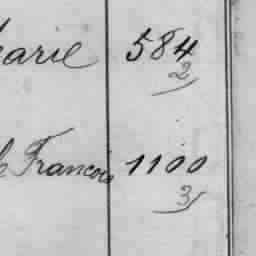 arie 584
2
Francois 1100
3